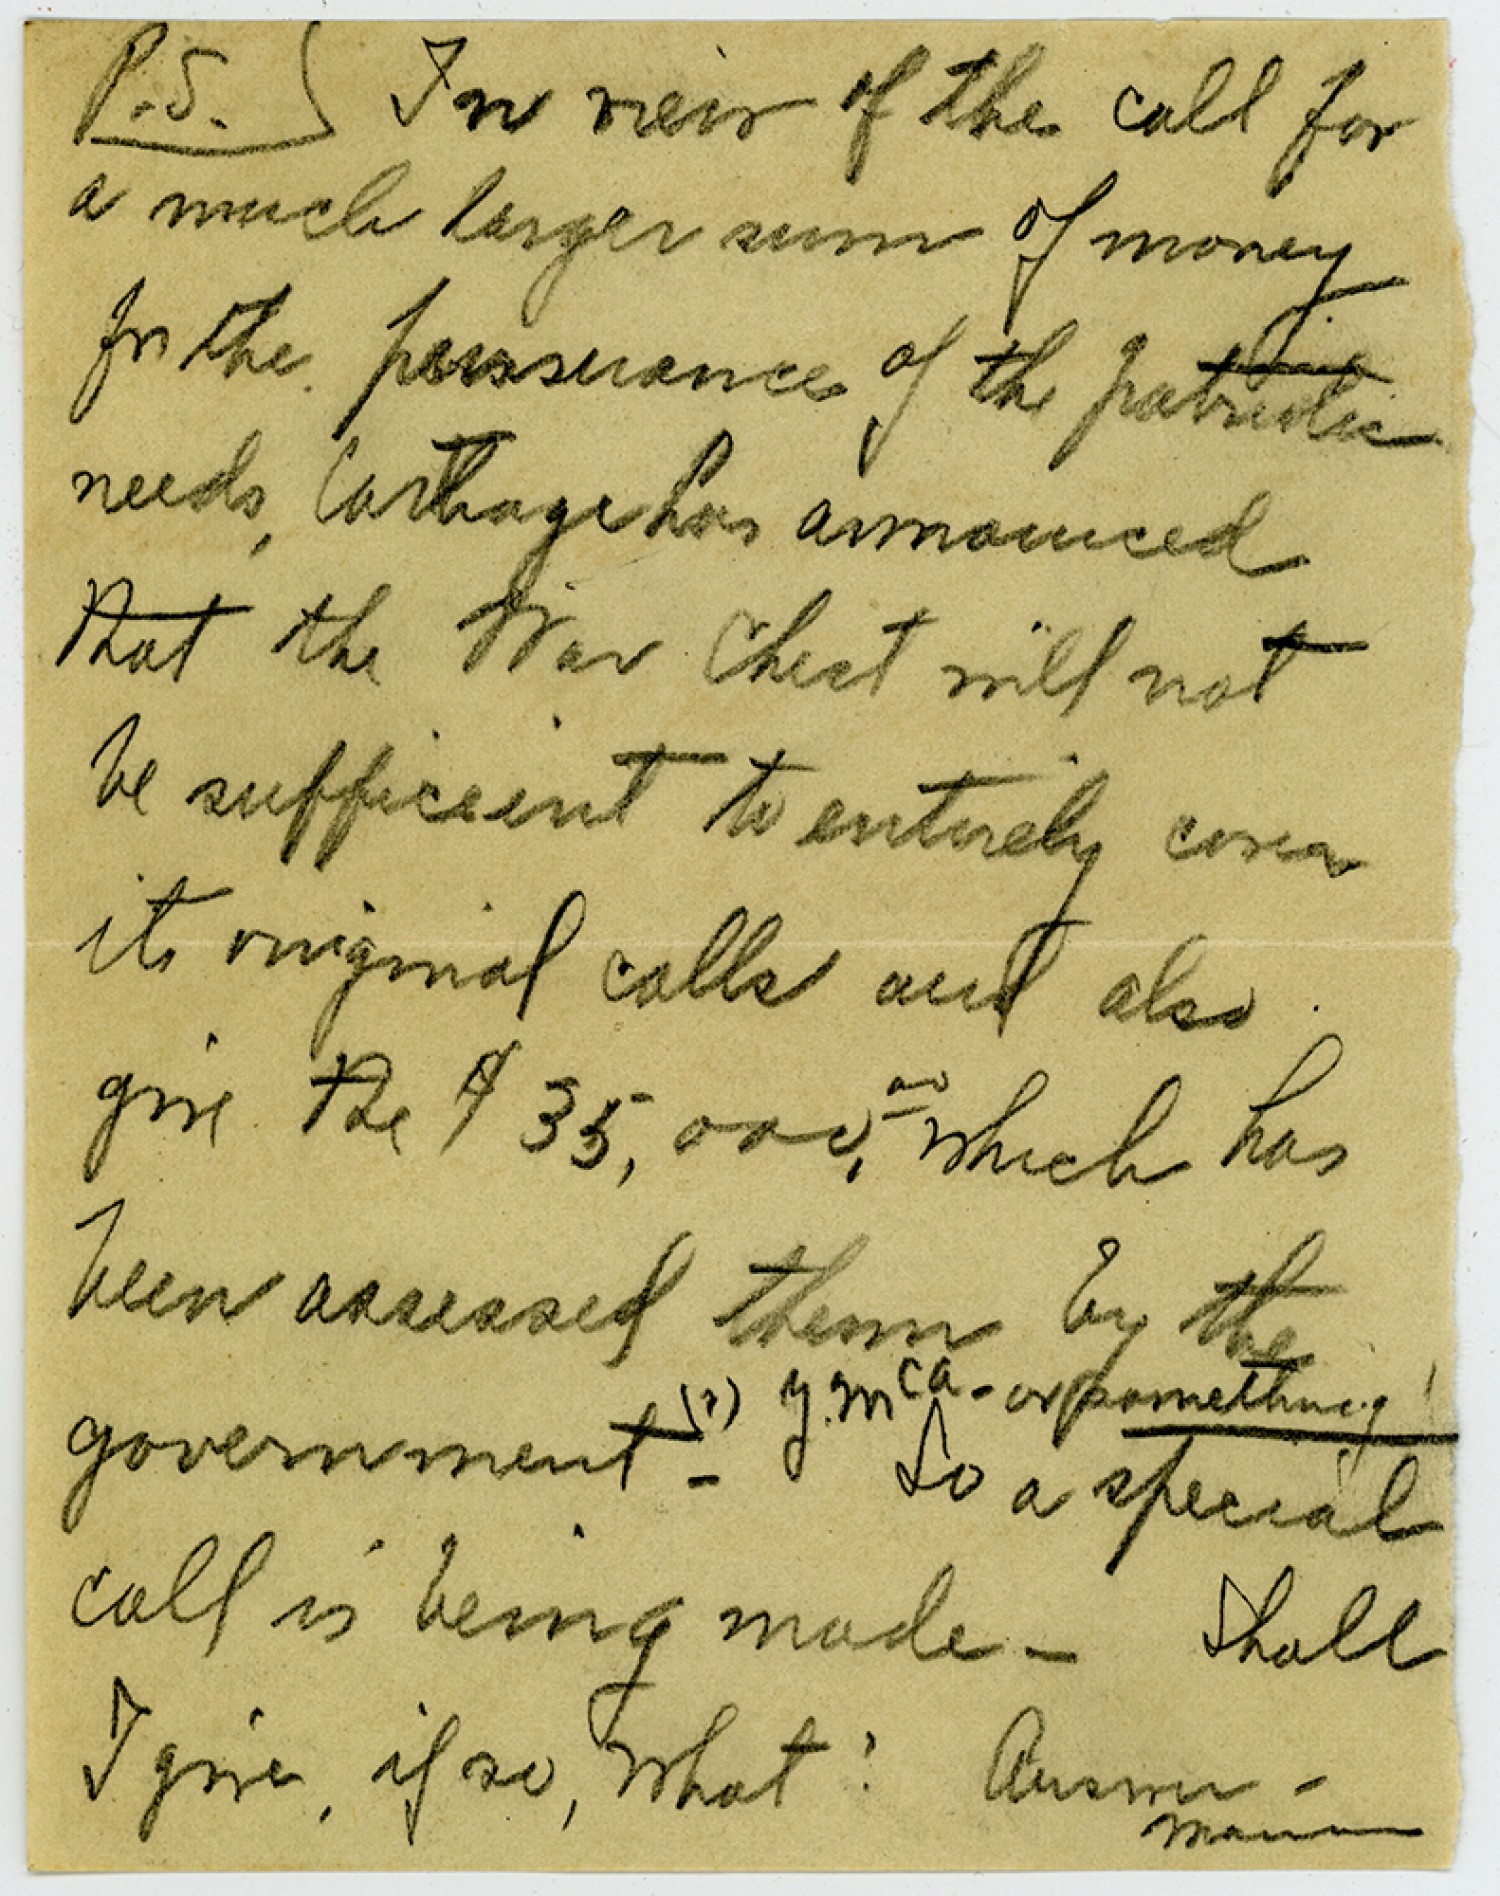 P.S. ) In view of the call for
a much larger sum of money
for the persuance of the patriotic
needs, Carthage has announced
that the War Chest will not
be sufficient to entirely cover
its original calls and also
give the $35,000,00 which has
been assessed them by the
government (?) - Y.M.C.A. - or something!
So a special
call is being made - Shall
I give, if so, what? Answer -
Mamma